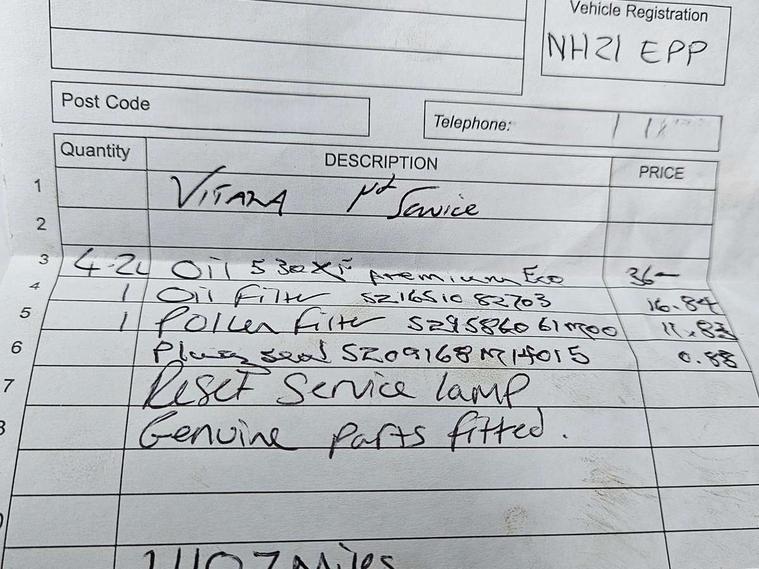 Vehicle Registration
NH21 EPP
Post Code
Telephone:
Quantity DESCRIPTION PRICE
1 VITARA Service
2
3 4.2L Oil 530 Premium Eco 36-
4 1 Oil Filter SZ16510 82703 16.84
5 1 Pollen Filter SZ95860 61M00 11.83
6 Plug seal SZ09168M14015 0.88
7 Reset Service lamp
Genuine parts fitted.
Miles